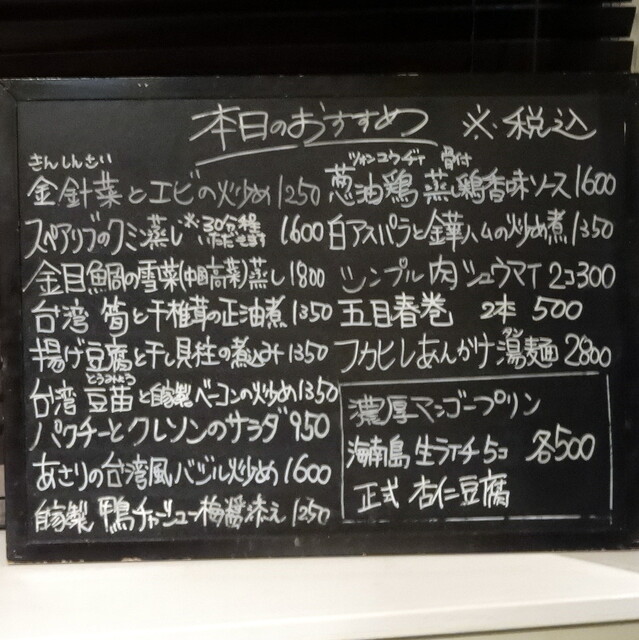 本日のおすすめ ※税込
きんしんさい
金針菜とエビの炒め 1250
スペアリブのクミン蒸し ※30分程いただきます 1600
金目鯛の雪菜(中国高菜)蒸し 1800
台湾 筍と干椎茸の正油煮 1350
揚げ豆腐と干し貝柱の煮込み 1350
とうみょう
台湾 豆苗と自家製ベーコンの炒め 1350
パクチーとクレソンのサラダ 950
あさりの台湾風バジル炒め 1600
自家製 鴨チャーシュー梅醤添え 1250
ツォンユウヂィ 骨付
葱油鶏 蒸し鶏香味ソース 1600
白アスパラと金華ハムの炒め煮 1350
シンプル肉シュウマイ 2コ 300
五目春巻 2本 500
タン
フカヒレあんかけ湯麺 2800
濃厚マンゴープリン
海南島 生ライチ 5コ 各500
正式 杏仁豆腐